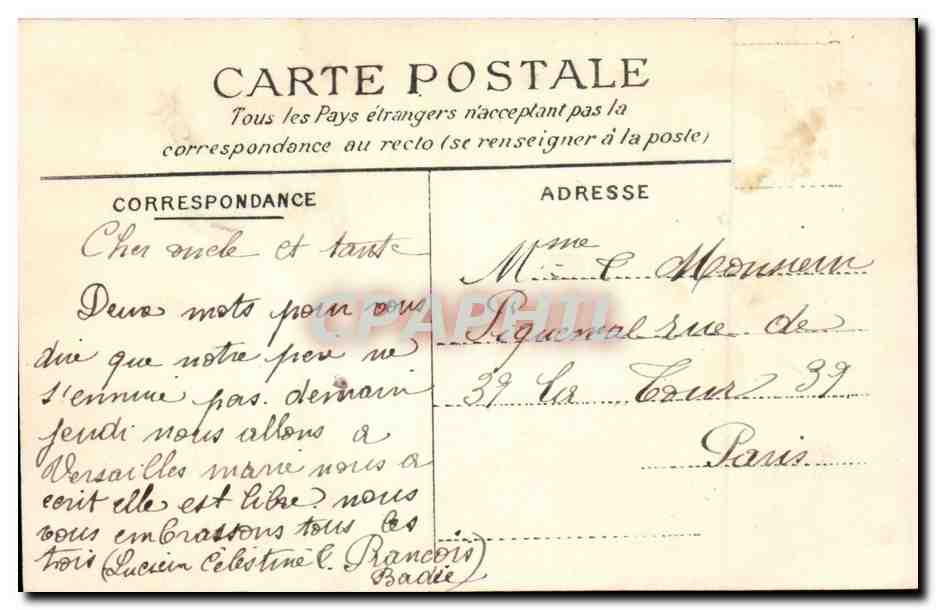 CARTE POSTALE
Tous les Pays étrangers n'acceptent pas la
correspondance au recto (se renseigner à la poste)
CORRESPONDANCE
Cher oncle et tante
Deux mots pour vous
dire que notre pere ne
s'ennuie pas. demain
jeudi nous allons a
Versailles marie nous a
ecrit elle est libre. nous
vous embrassons tous les
trois (Lucien Célestine C. François)
Badie
ADRESSE
Mme
Piquemal rue de
39 la Tour 39
Paris
CPAPHIL